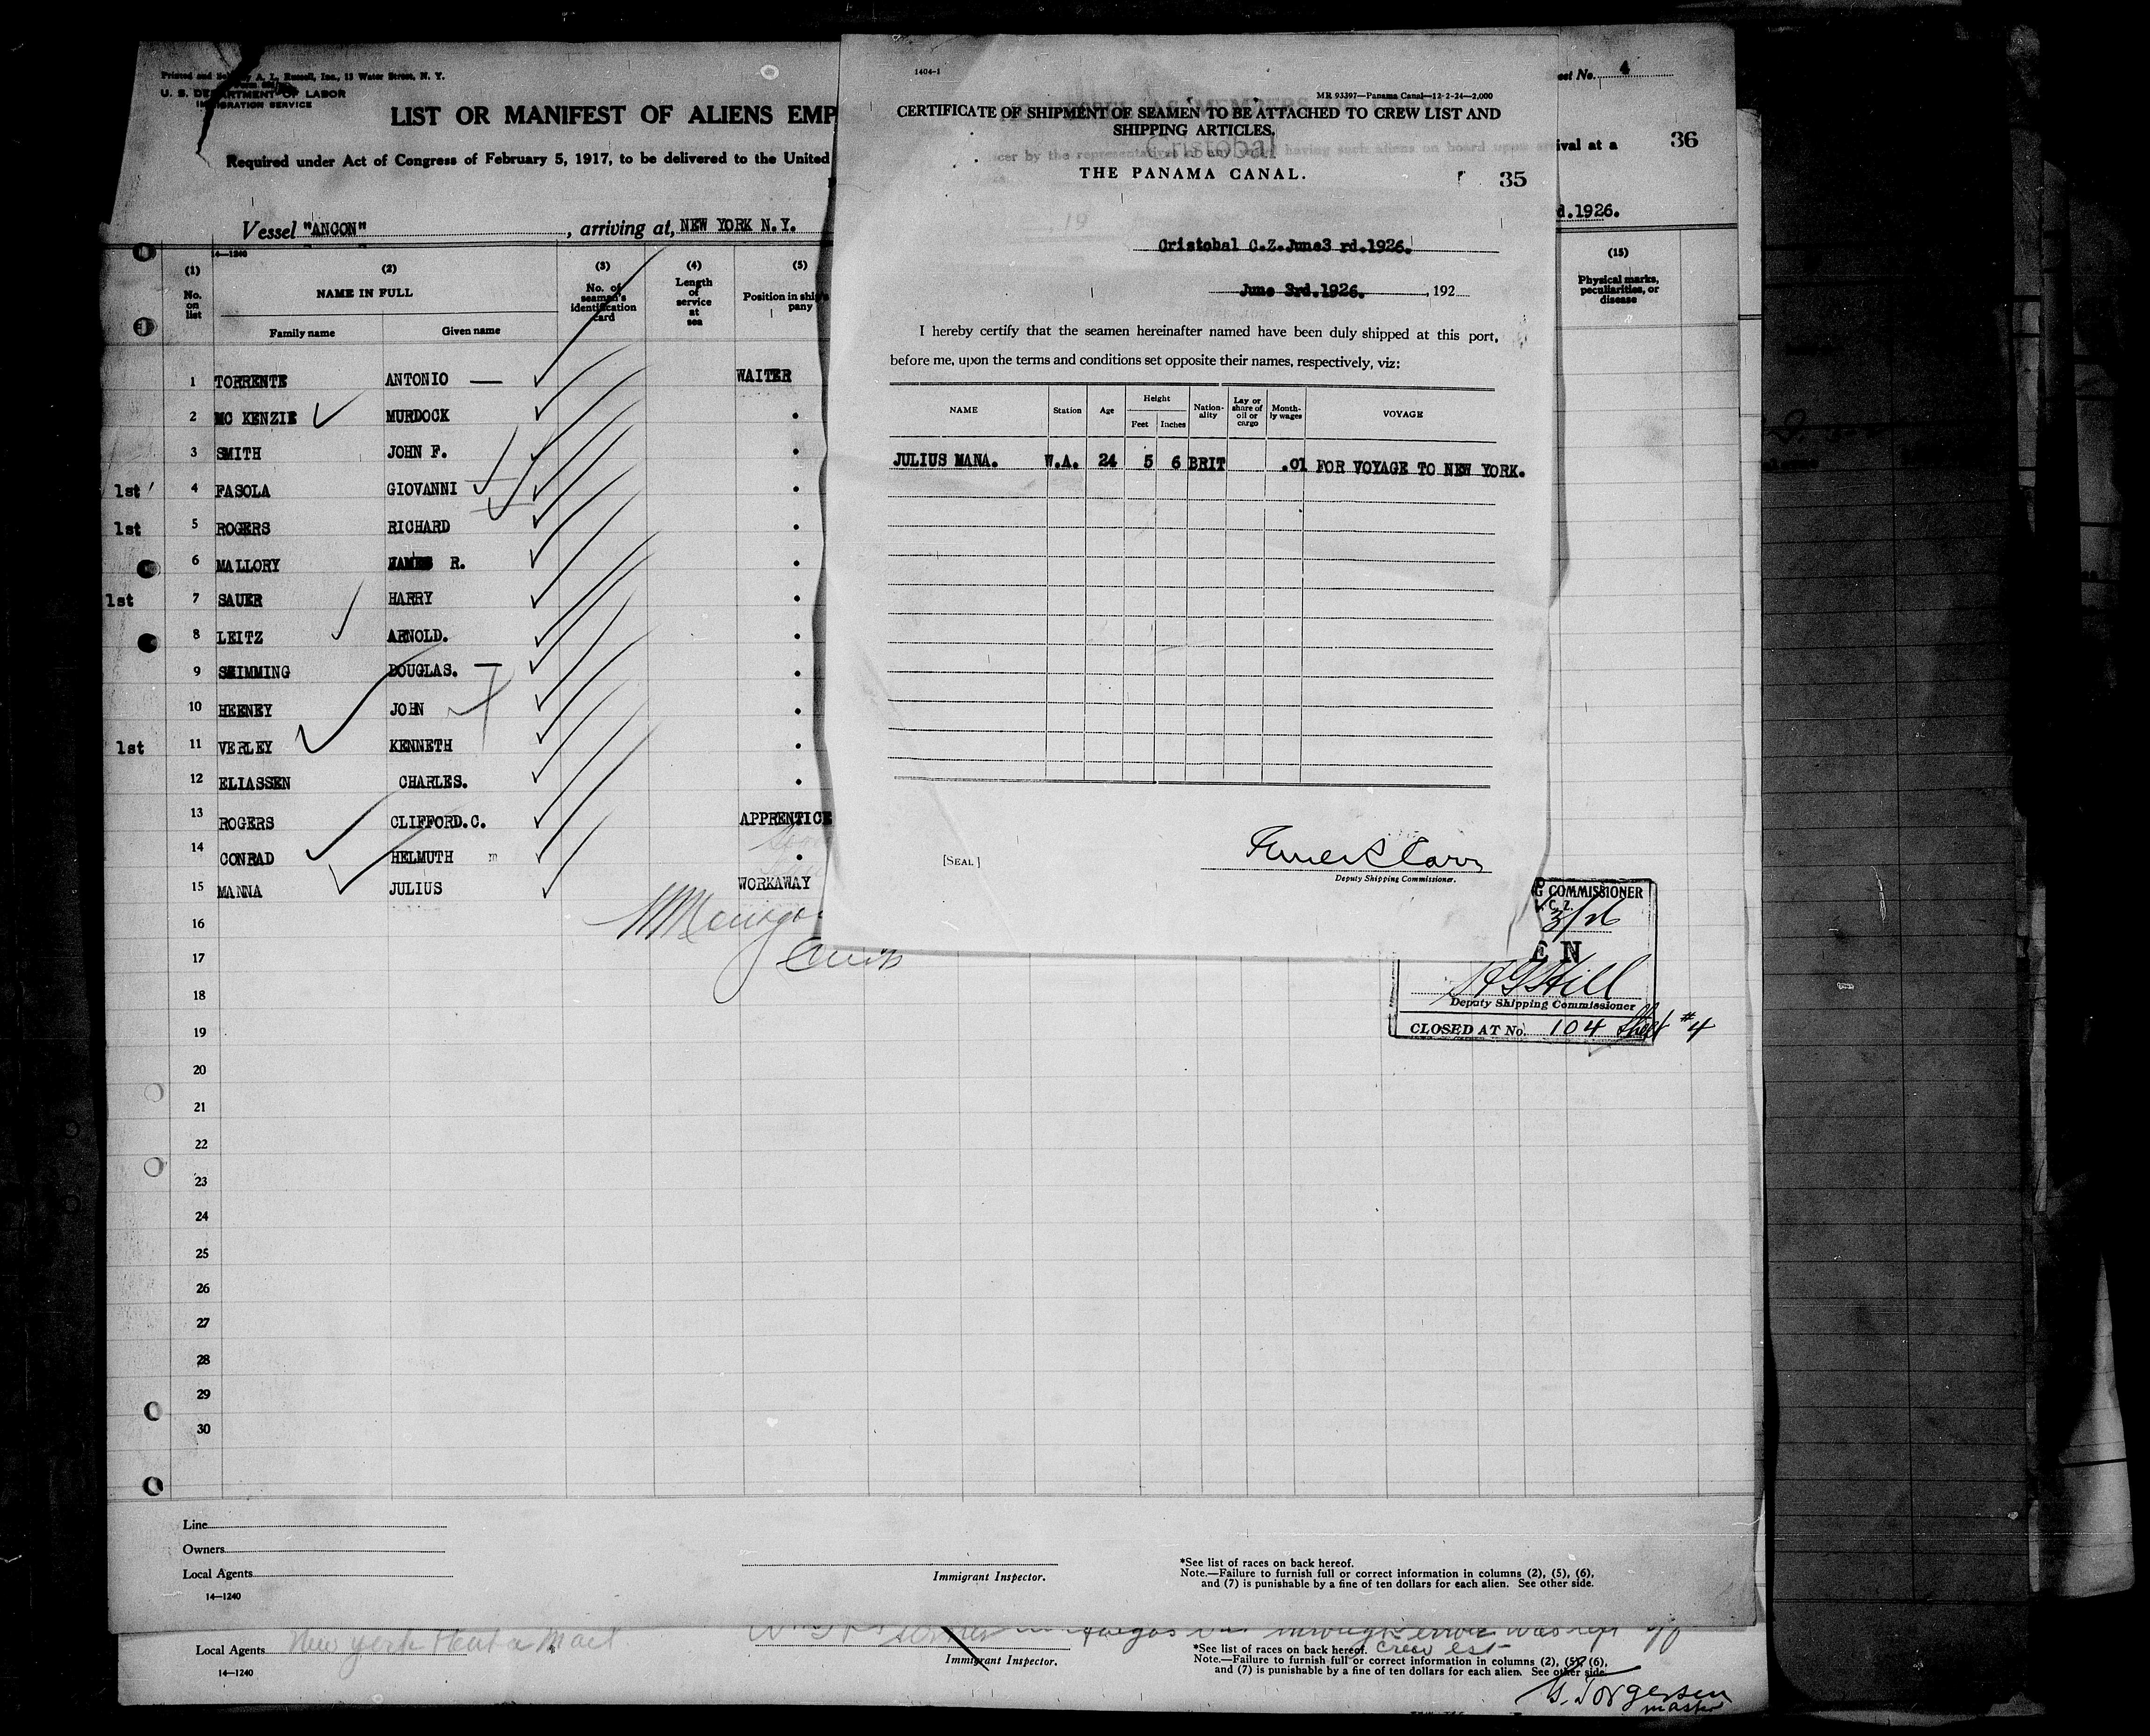 Printed and Sold by A. L. Russell, Inc., 13 Water Street, N. Y.
U. S. DEPARTMENT OF LABOR
IMMIGRATION SERVICE
LIST OR MANIFEST OF ALIENS EMP
Required under Act of Congress of February 5, 1917, to be delivered to the United
Vessel "ANCON", arriving at, NEW YORK N.Y.
14—1240
(1) (2) (3) (4) (5)
No. on list
NAME IN FULL
Family name Given name
No. of seaman's identification card
Length of service at sea
Position in ship's
pany
1 TORRENTE ANTONIO — WAITER
2 MC KENZIE MURDOCK "
3 SMITH JOHN F. "
1st 4 FASOLA GIOVANNI "
1st 5 ROGERS RICHARD "
6 MALLORY JAMES R. "
1st 7 SAUER HARRY "
8 LEITZ ARNOLD. "
9 SHIMMING DOUGLAS. — "
10 HEENEY JOHN "
1st 11 VERLEY KENNETH "
12 ELIASSEN CHARLES. "
13 ROGERS CLIFFORD.C. APPRENTICE
14 CONRAD HELMUTH m "
15 MANNA JULIUS WORKAWAY
16
17
18
19
20
21
22
23
24
25
26
27
28
29
30
Line
Owners
Local Agents
14—1240
Immigrant Inspector.
*See list of races on back hereof.
Note.—Failure to furnish full or correct information in columns (2), (5), (6),
and (7) is punishable by a fine of ten dollars for each alien. See other side.
1404-1
MR 93397—Panama Canal—12-2-24—2,000
CERTIFICATE OF SHIPMENT OF SEAMEN TO BE ATTACHED TO CREW LIST AND
SHIPPING ARTICLES.
Cristobal
THE PANAMA CANAL.
35
Cristobal C.Z.June3 rd.1926.
June 3rd.1926. , 192
I hereby certify that the seamen hereinafter named have been duly shipped at this port,
before me, upon the terms and conditions set opposite their names, respectively, viz:
NAME Station Age Height Feet Inches Nation-ality Lay or share of oil or cargo Month-ly wages VOYAGE
JULIUS MANA. W.A. 24 5 6 BRIT .01 FOR VOYAGE TO NEW YORK.
[SEAL]
Deputy Shipping Commissioner.
eet No. 4
ival at a 36
d.1926.
(15)
Physical marks, peculiarities, or disease
G COMMISSIONER
C. Z.
3/26
EN
Deputy Shipping Commissioner
CLOSED AT No. 104 Sheet #4
Local Agents New York
14—1240
Immigrant Inspector.
crew list
*See list of races on back hereof.
Note.—Failure to furnish full or correct information in columns (2), (5), (6),
and (7) is punishable by a fine of ten dollars for each alien. See other side.
G. Jorgensen
master